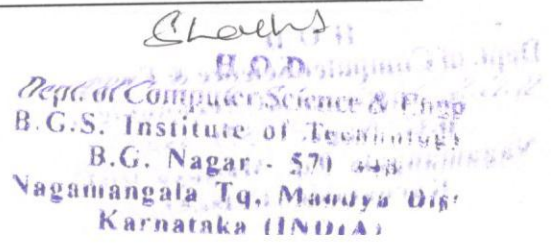 H.O.D
Dept. of Computer Science & Engg
B.G.S. Institute of Technology
B.G. Nagar - 571 448
Nagamangala Tq, Mandya Dis
Karnataka (INDIA)